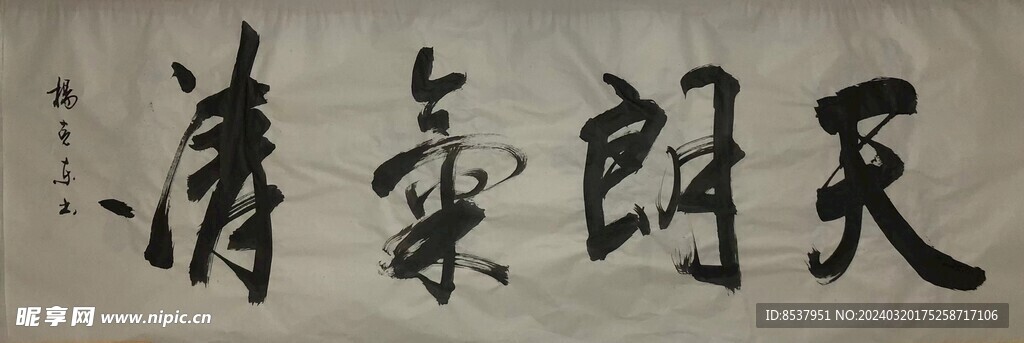 天朗氣清
昵享网 www.nipic.cn
ID:8537951 NO:20240320175258717106